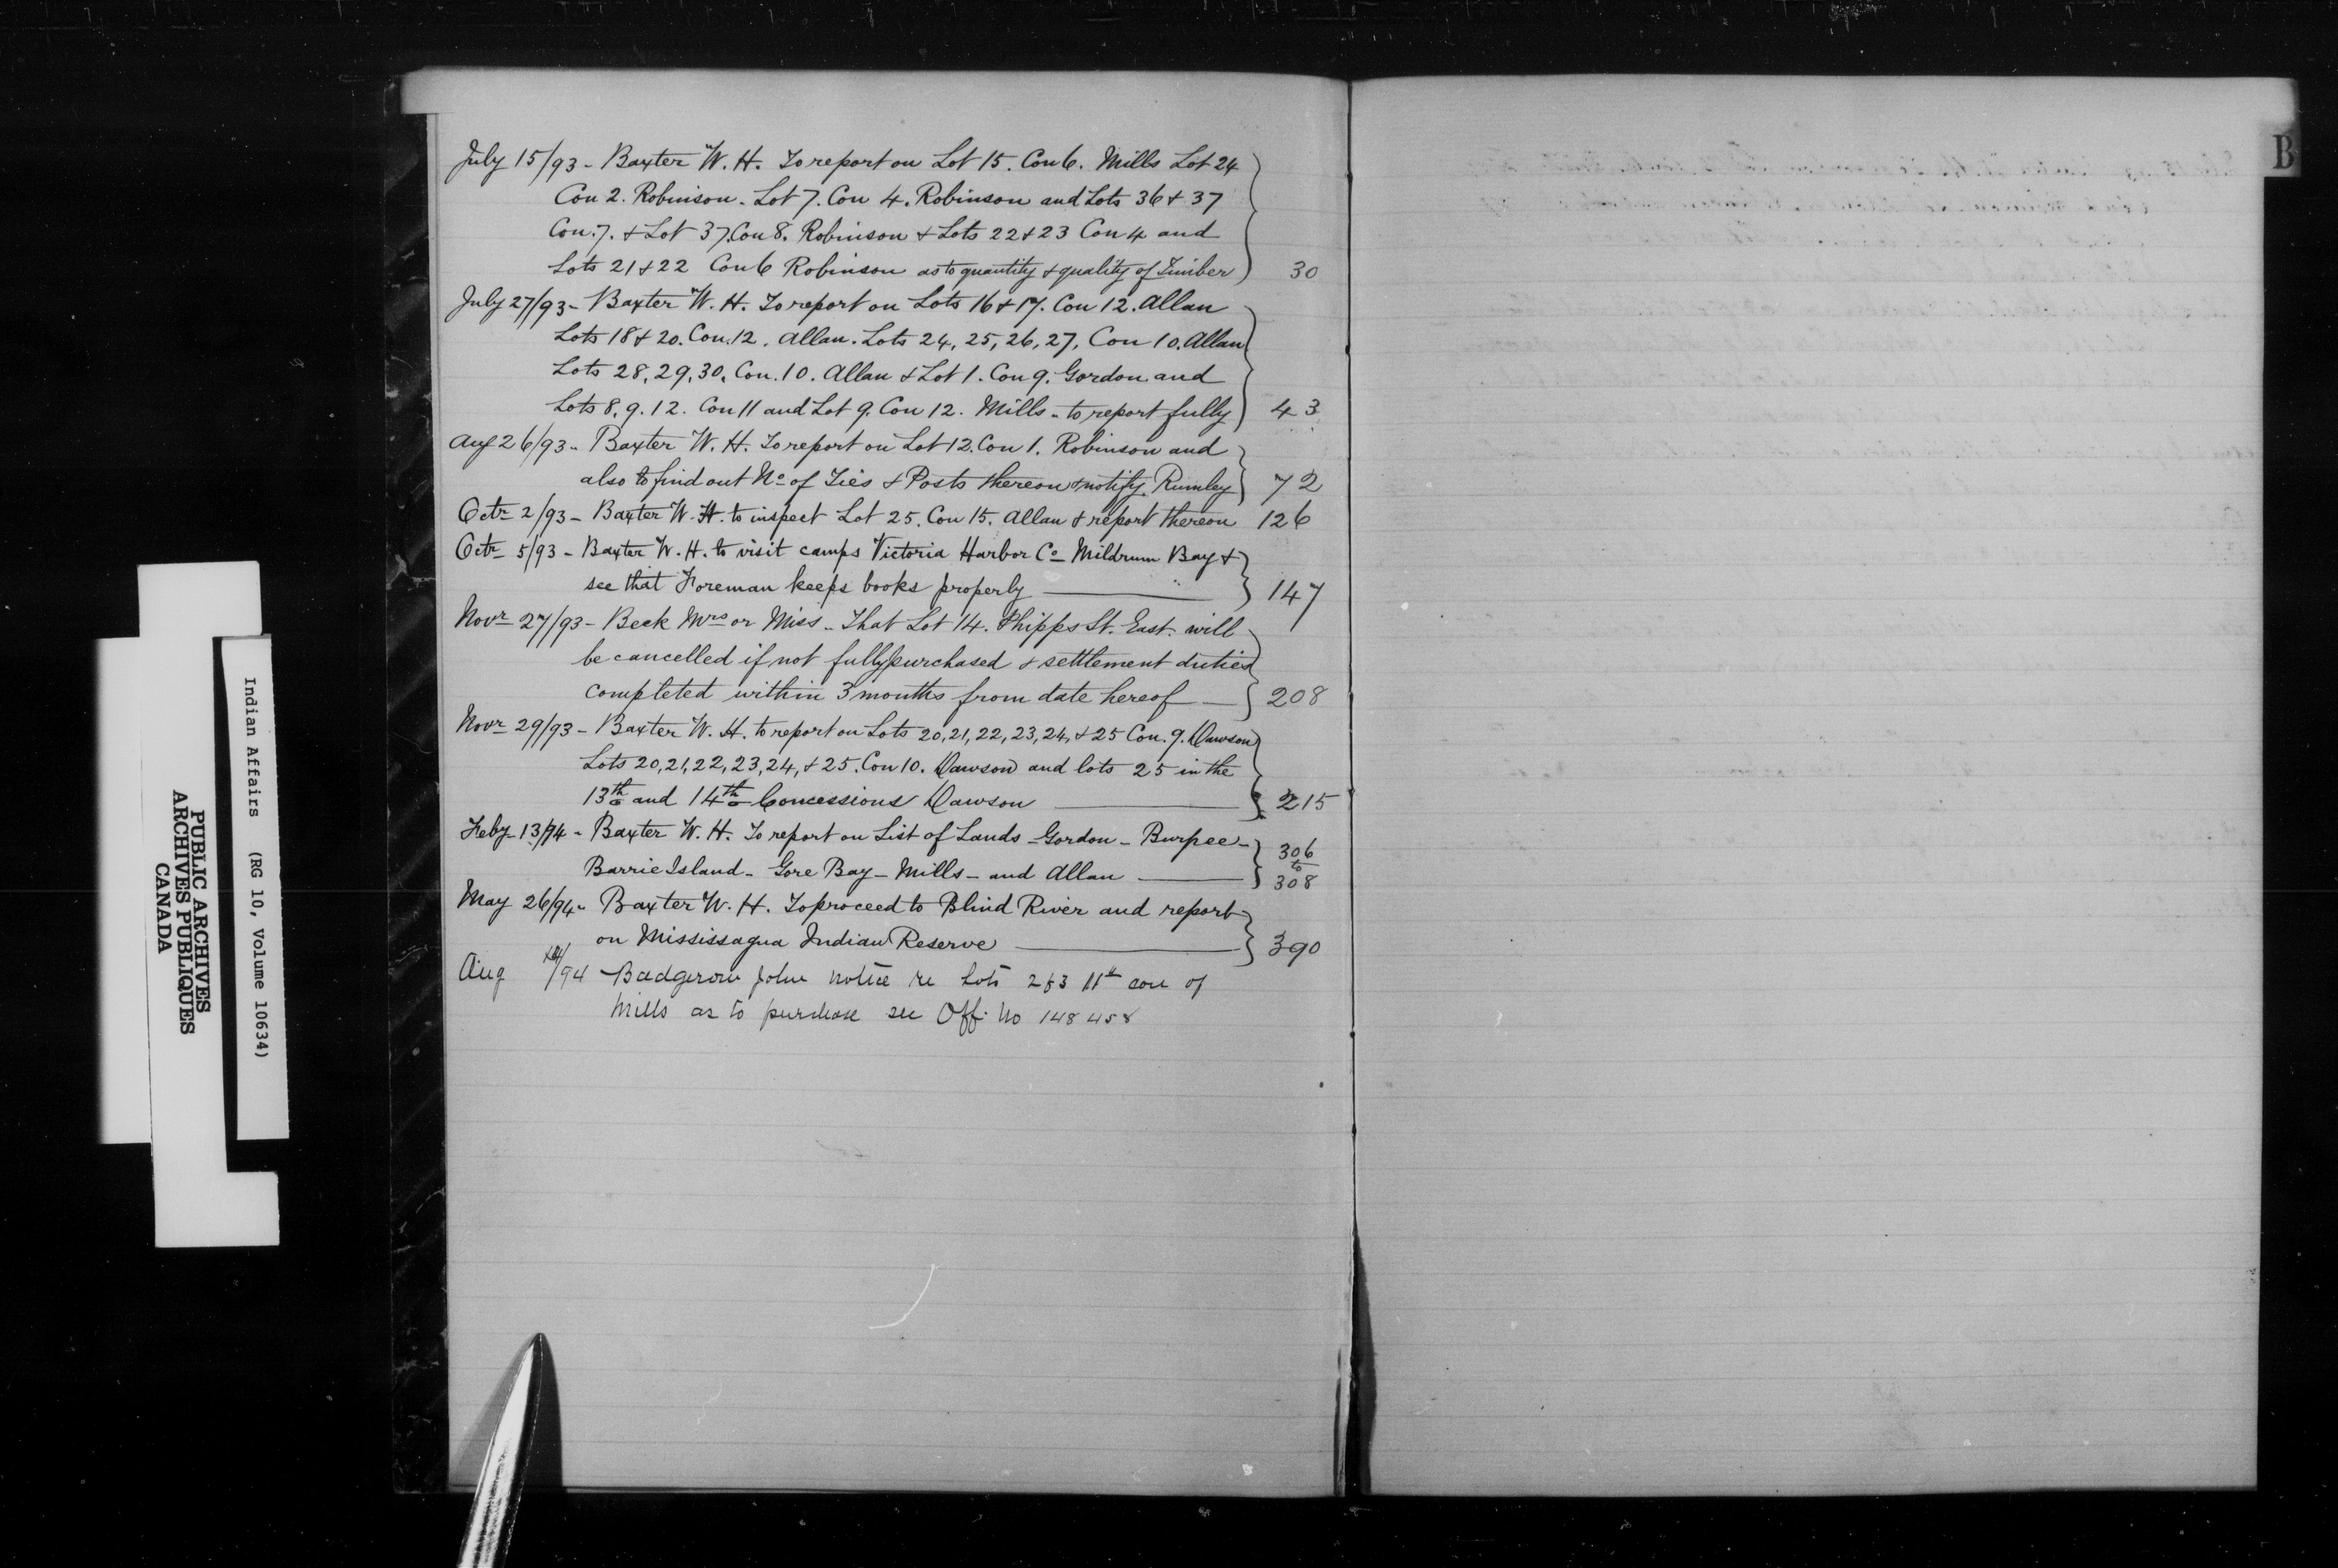 July 15/93 - Baxter W. H. To report on Lot 15. Con 6. Mills Lot 24
Con 2. Robinson. Lot 7. Con 4. Robinson and Lots 36 & 37
Con. 7. & Lot 37. Con 8. Robinson & Lots 22 & 23 Con 4 and
Lots 21 & 22 Con 6 Robinson as to quantity & quality of Timber 30
July 27/93 - Baxter W. H. To report on Lots 16 & 17. Con 12. Allan
Lots 18 & 20. Con. 12. Allan. Lots 24, 25, 26, 27, Con 10. Allan
Lots 28, 29, 30, Con. 10. Allan & Lot 1. Con 9. Gordon and
Lots 8. 9. 12. Con 11 and Lot 9. Con 12. Mills - to report fully 43
Aug 26/93 - Baxter W. H. To report on Lot 12. Con 1. Robinson and
also to find out No of Ties & Posts thereon & notify Rumley 72
Octr 2/93 - Baxter W. H. to inspect Lot 25. Con 15. Allan & report thereon 126
Octr 5/93 - Baxter W. H. to visit camps Victoria Harbor Co Mildrum Bay &
see that Foreman keeps books properly 147
Novr 27/93 - Beck Mrs or Miss - That Lot 14. Phipps St. East. will
be cancelled if not fully purchased & settlement duties
completed within 3 months from date hereof 208
Novr 29/93 - Baxter W. H. to report on Lots 20, 21, 22, 23, 24, & 25 Con. 9. Dawson
Lots 20, 21, 22, 23, 24, & 25. Con 10. Dawson and lots 25 in the
13th and 14th Concessions Dawson 215
Feby 13/94 - Baxter W. H. To report on List of Lands - Gordon - Burpee -
Barrie Island - Gore Bay - Mills - and Allan 306 to 308
May 26/94 - Baxter W. H. To proceed to Blind River and report
on Mississagua Indian Reserve 390
Aug /94 Badgerow John notice re Lots 2 & 3 11th con of
Mills as to purchase see Off. No 148458
B
Indian Affairs (RG 10, Volume 10634)
PUBLIC ARCHIVES
ARCHIVES PUBLIQUES
CANADA